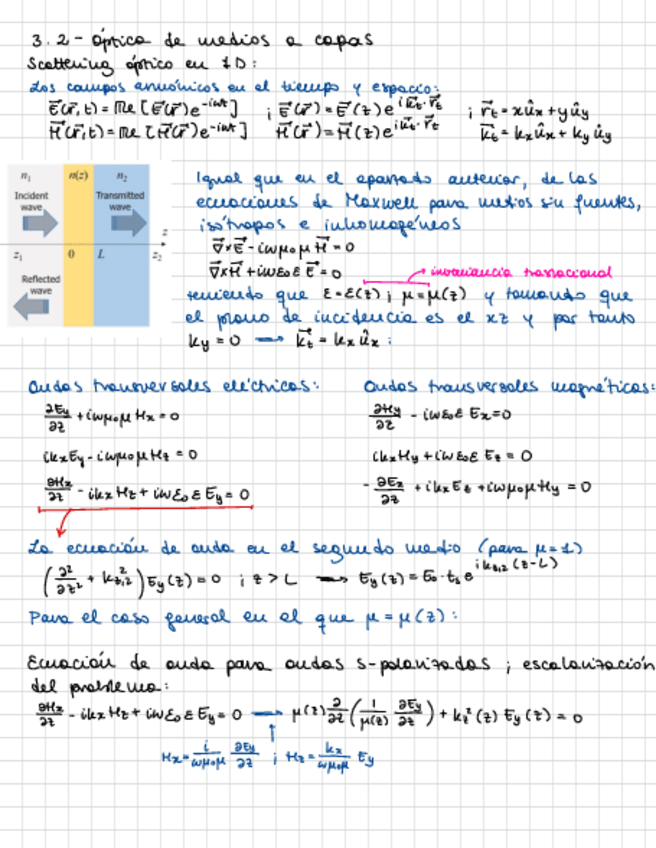 3.2 - óptica de medios a capas
Scattering óptico en 1D:
Los campos armónicos en el tiempo y espacio:
E⃗(r⃗,t) = Re [E⃗(r⃗)e^{-iωt}] ; E⃗(r⃗) = E⃗(z) e^{i k⃗t·r⃗t} ; r⃗t = xûx + yûy
H⃗(r⃗,t) = Re [H⃗(r⃗)e^{-iωt}] H⃗(r⃗) = H⃗(z) e^{i k⃗t·r⃗t} k⃗t = kxûx + ky ûy
n₁ n(z) n₂
Incident wave Transmitted wave
z
z₁ 0 L z₂
Reflected wave
Igual que en el apartado anterior, de las
ecuaciones de Maxwell para medios sin fuentes,
isótropos e inhomogéneos
∇⃗×E⃗ - iωμ₀μ H⃗ = 0
∇⃗×H⃗ + iωε₀ε E⃗ = 0
invariancia traslacional
teniendo que ε = ε(z) ; μ = μ(z) y tomando que
el plano de incidencia es el xz y por tanto
ky = 0 → k⃗t = kx ûx :
Ondas transversales eléctricas: Ondas transversales magnéticas:
∂Ey/∂z + iωμ₀μ Hx = 0 ∂Hy/∂z - iωε₀ε Ex = 0
ikxEy - iωμ₀μ Hz = 0 ikxHy + iωε₀ε Ez = 0
∂Hx/∂z - ikx Hz + iωε₀ε Ey = 0 - ∂Ex/∂z + ikx Ez + iωμ₀μHy = 0
La ecuación de onda en el segundo medio (para μ=1)
(∂²/∂z² + k²z,2) Ey(z) = 0 ; z > L → Ey(z) = E₀·ts e^{ikz,2(z-L)}
Para el caso general en el que μ = μ(z):
Ecuación de onda para ondas s-polarizadas ; escalarización
del problema:
∂Hx/∂z - ikx Hz + iωε₀ε Ey = 0 → μ(z) ∂/∂z (1/μ(z) ∂Ey/∂z) + kz²(z) Ey(z) = 0
Hx = i/ωμ₀μ ∂Ey/∂z ; Hz = kx/ωμ₀μ Ey